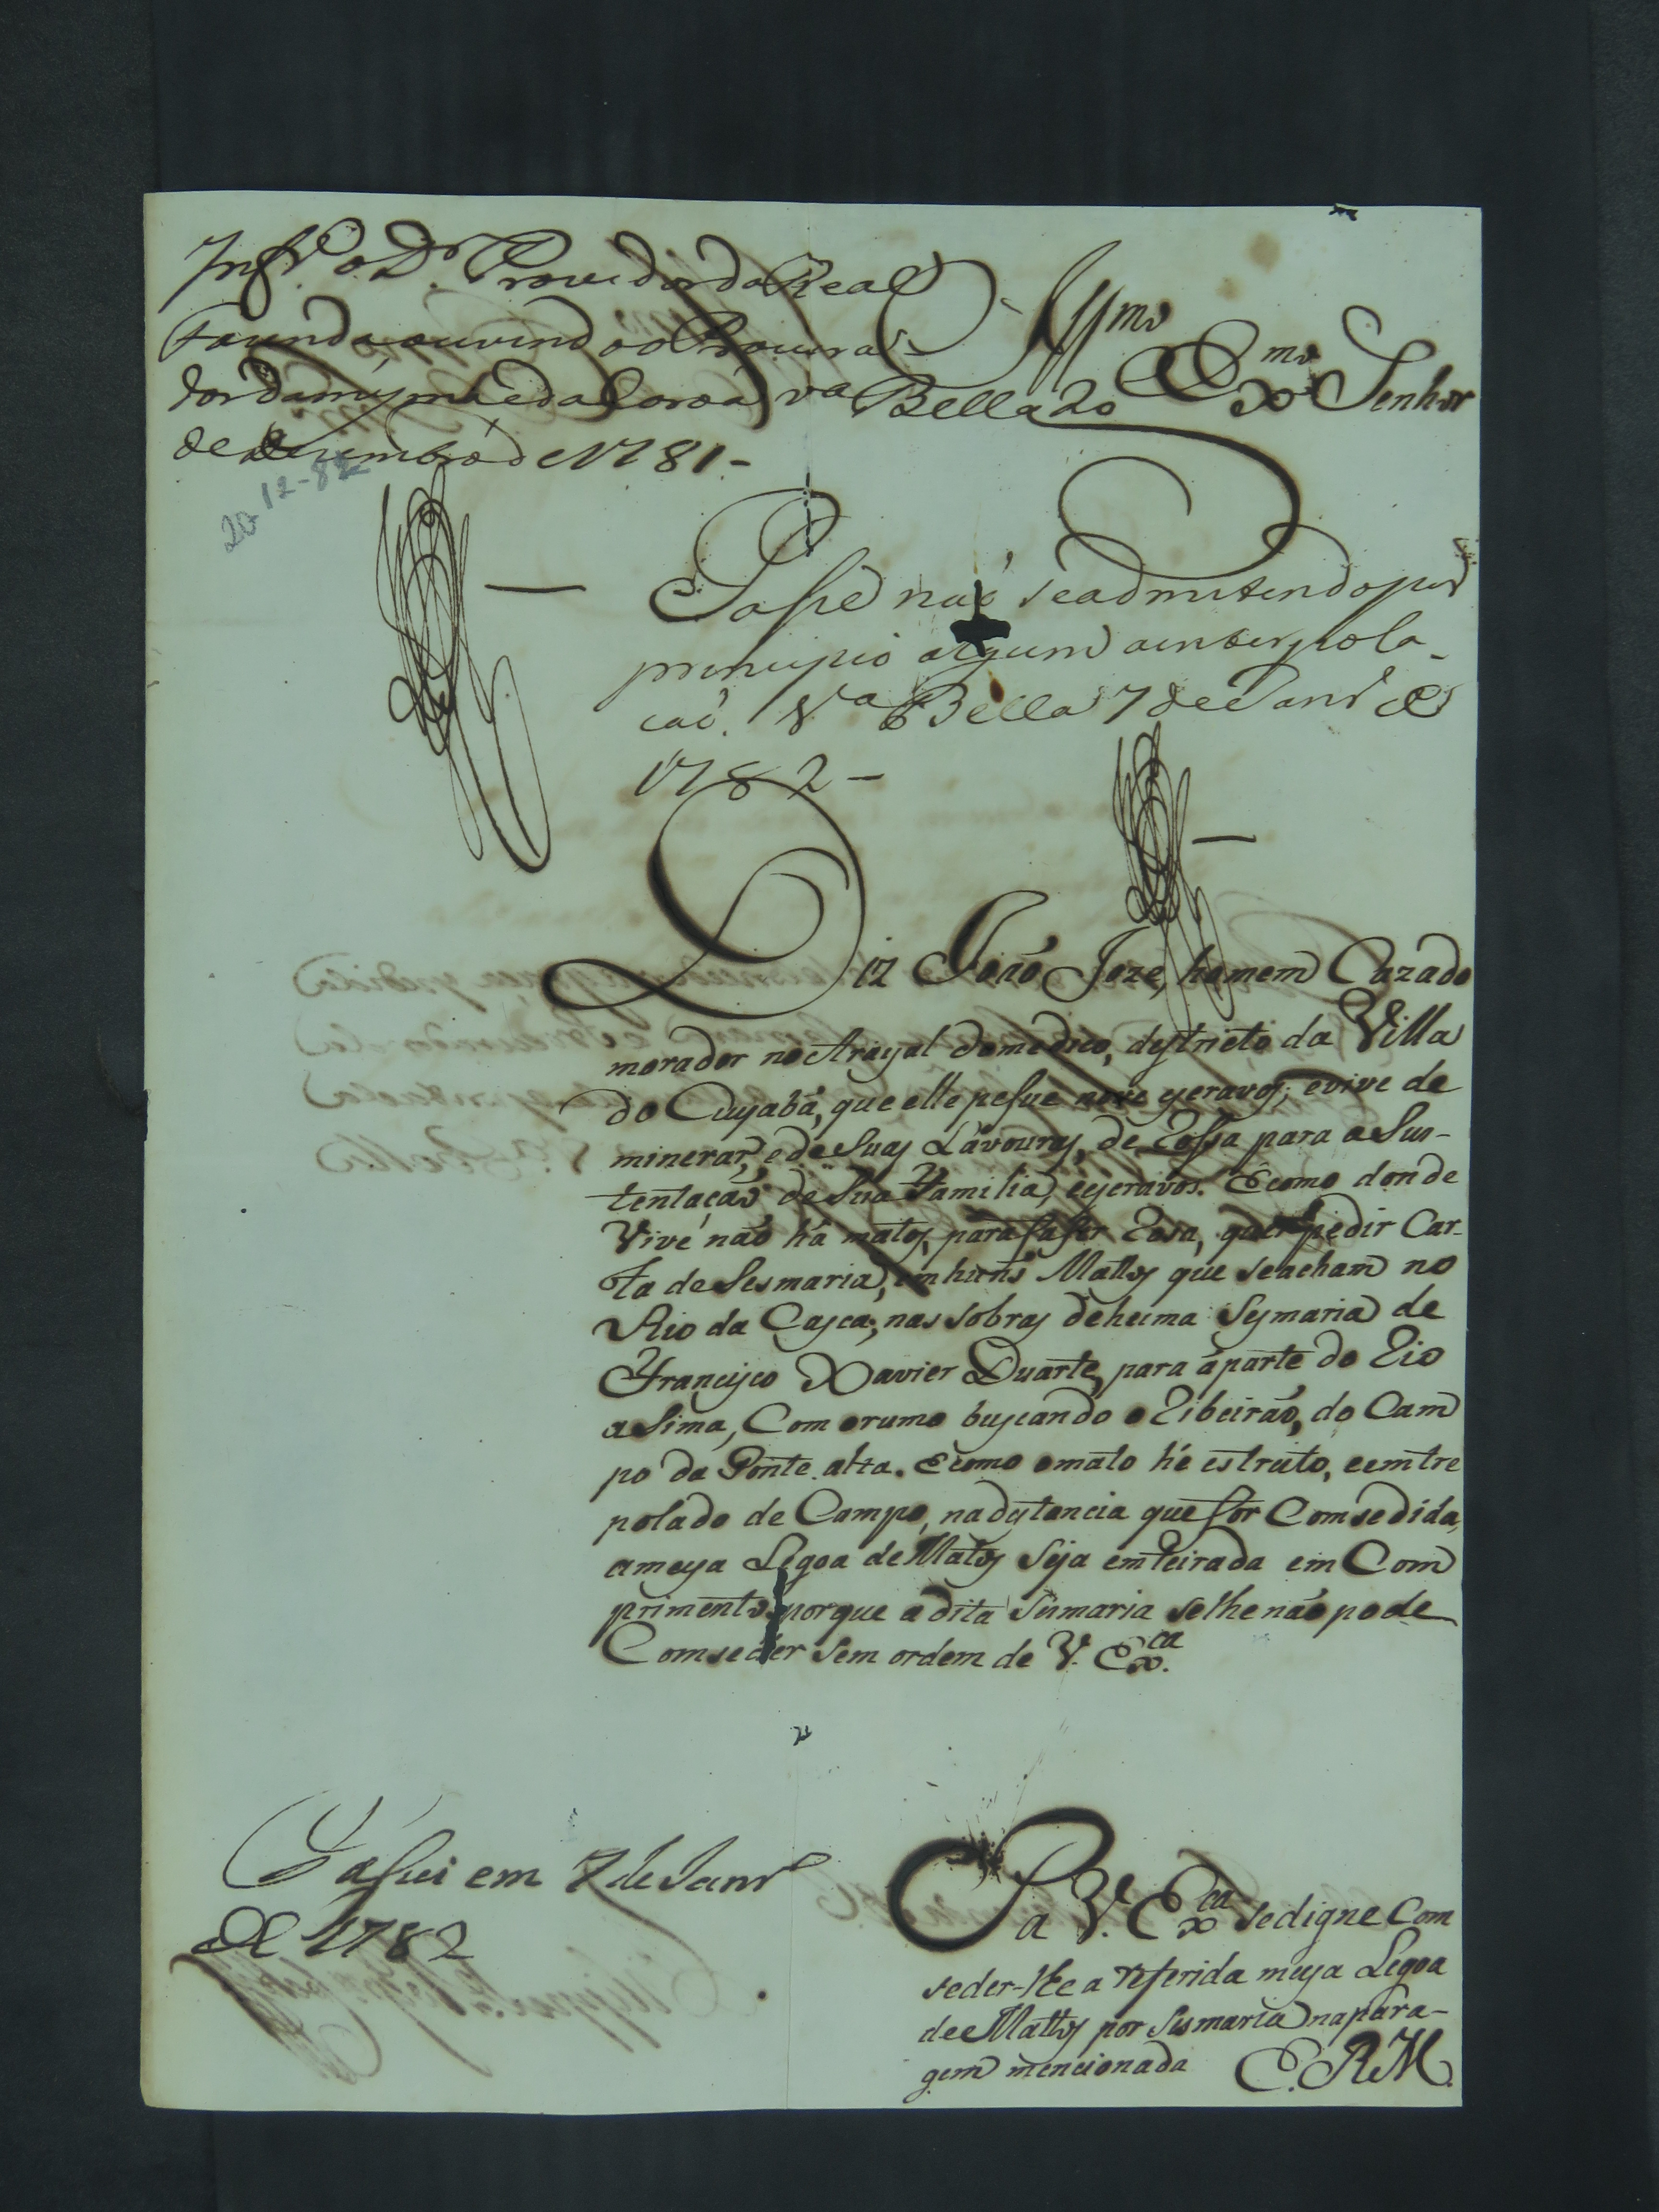 Inf.e o D.r Provedor da Real
Fazenda ouvindo o Procura-
dor da mesma e da Coroa V.a Bella 20
de Dezembro de 1781-
20-12-82
Illmo
Exmo Senhor
Passe naõ se admitindo por
principio algum a interpola-
caõ. V.a Bella 7 de Janr.o de
1782-
Diz Joaõ Joze, homem Cazado
morador no Arayal do medico, destricto da Villa
do Cuyabá, que elle pesue nove escravos, e vive de
minerar, e de Suas Lavouras, de Rossa para a Sus-
tentaçaõ de Sua Familia, e escravos. E como donde
Vive naõ há matos, para faser Rosa, quer pedir Car-
ta de Sesmaria, em huns Mattos que se acham no
Rio da Casca, nas sobras de huma Sesmaria de
Francisco Xavier Duarte, para a parte do Rio
asima, Com o rumo buscando o Ribeiraõ, do Cam
po da Ponte alta. E como o mato hé estreito, e emtre
polado de Campo, na distancia que for Comsedida,
a meya Legoa de Matos Seja emteirada em Com
primento, porque a dita Sismaria se lhe naõ pode
Comseder sem ordem de V. Ex.ca
P a V. Ex.ca se digne Com
seder-lhe a referida meya Legoa
de Mattos por Sismaria na para-
gem mencionada E. R. M.
Passei em 7 de Janr.o
de 1782